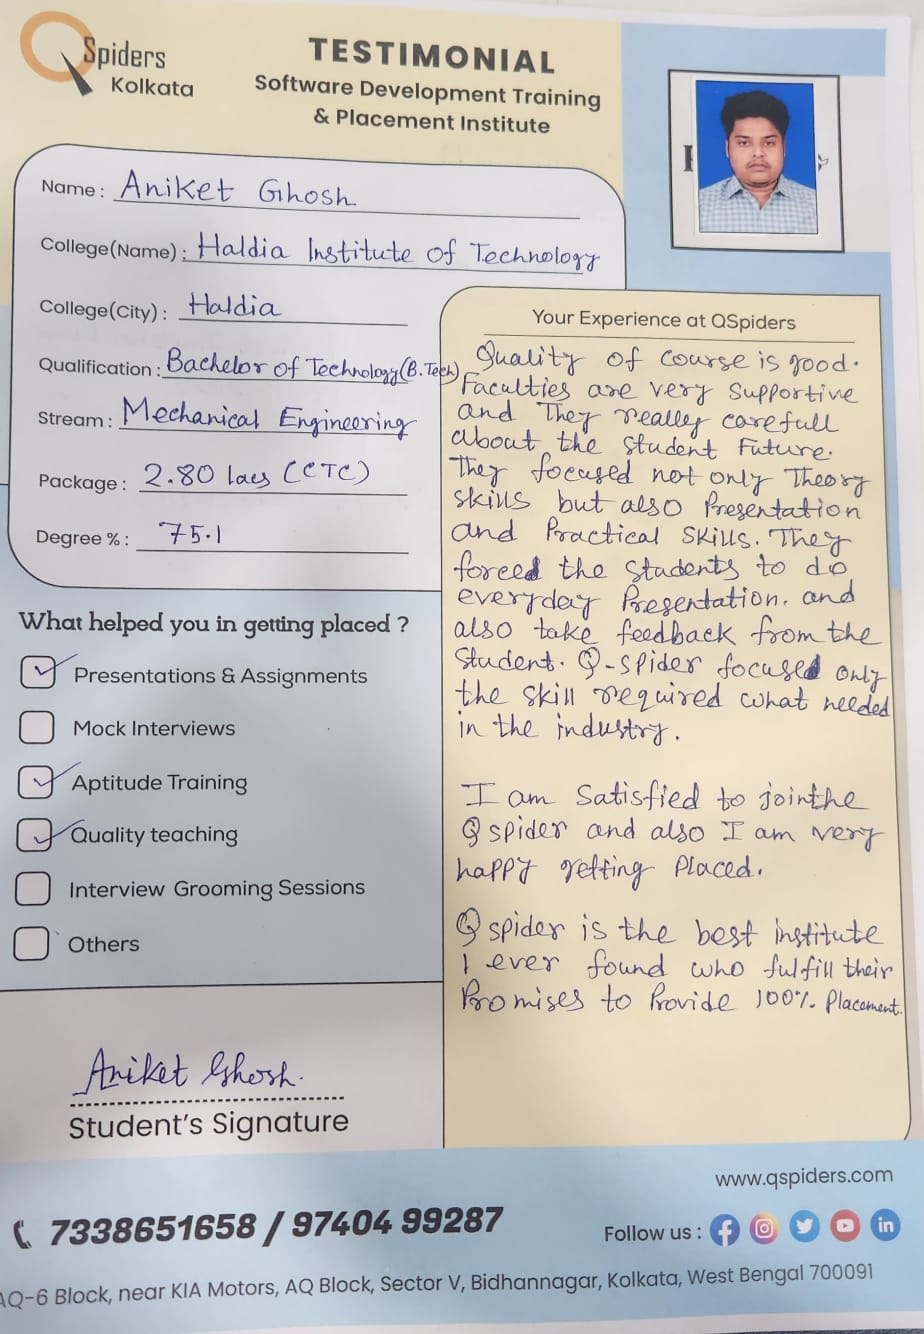 QSpiders
Kolkata
TESTIMONIAL
Software Development Training
& Placement Institute
Name : Aniket Ghosh
College(Name) : Haldia Institute of Technology
College(City) : Haldia
Qualification : Bachelor of Technology(B.Tech)
Stream : Mechanical Engineering
Package : 2.80 lacs (CTC)
Degree % : 75.1
What helped you in getting placed ?
Presentations & Assignments
Mock Interviews
Aptitude Training
Quality teaching
Interview Grooming Sessions
Others
Aniket Ghosh.
Student's Signature
Your Experience at QSpiders
Quality of course is good.
Faculties are very supportive
and They really carefull
about the student Future.
They focused not only Theory
skills but also Presentation
and Practical skills. They
forced the students to do
everyday Presentation. and
also take feedback from the
student. Q-spider focused only
the skill required what needed
in the industry.
I am Satisfied to jointhe
Q spider and also I am very
happy getting Placed.
Q spider is the best institute
I ever found who fulfill their
Promises to Provide 100% Placement.
www.qspiders.com
7338651658 / 97404 99287
Follow us :
AQ-6 Block, near KIA Motors, AQ Block, Sector V, Bidhannagar, Kolkata, West Bengal 700091